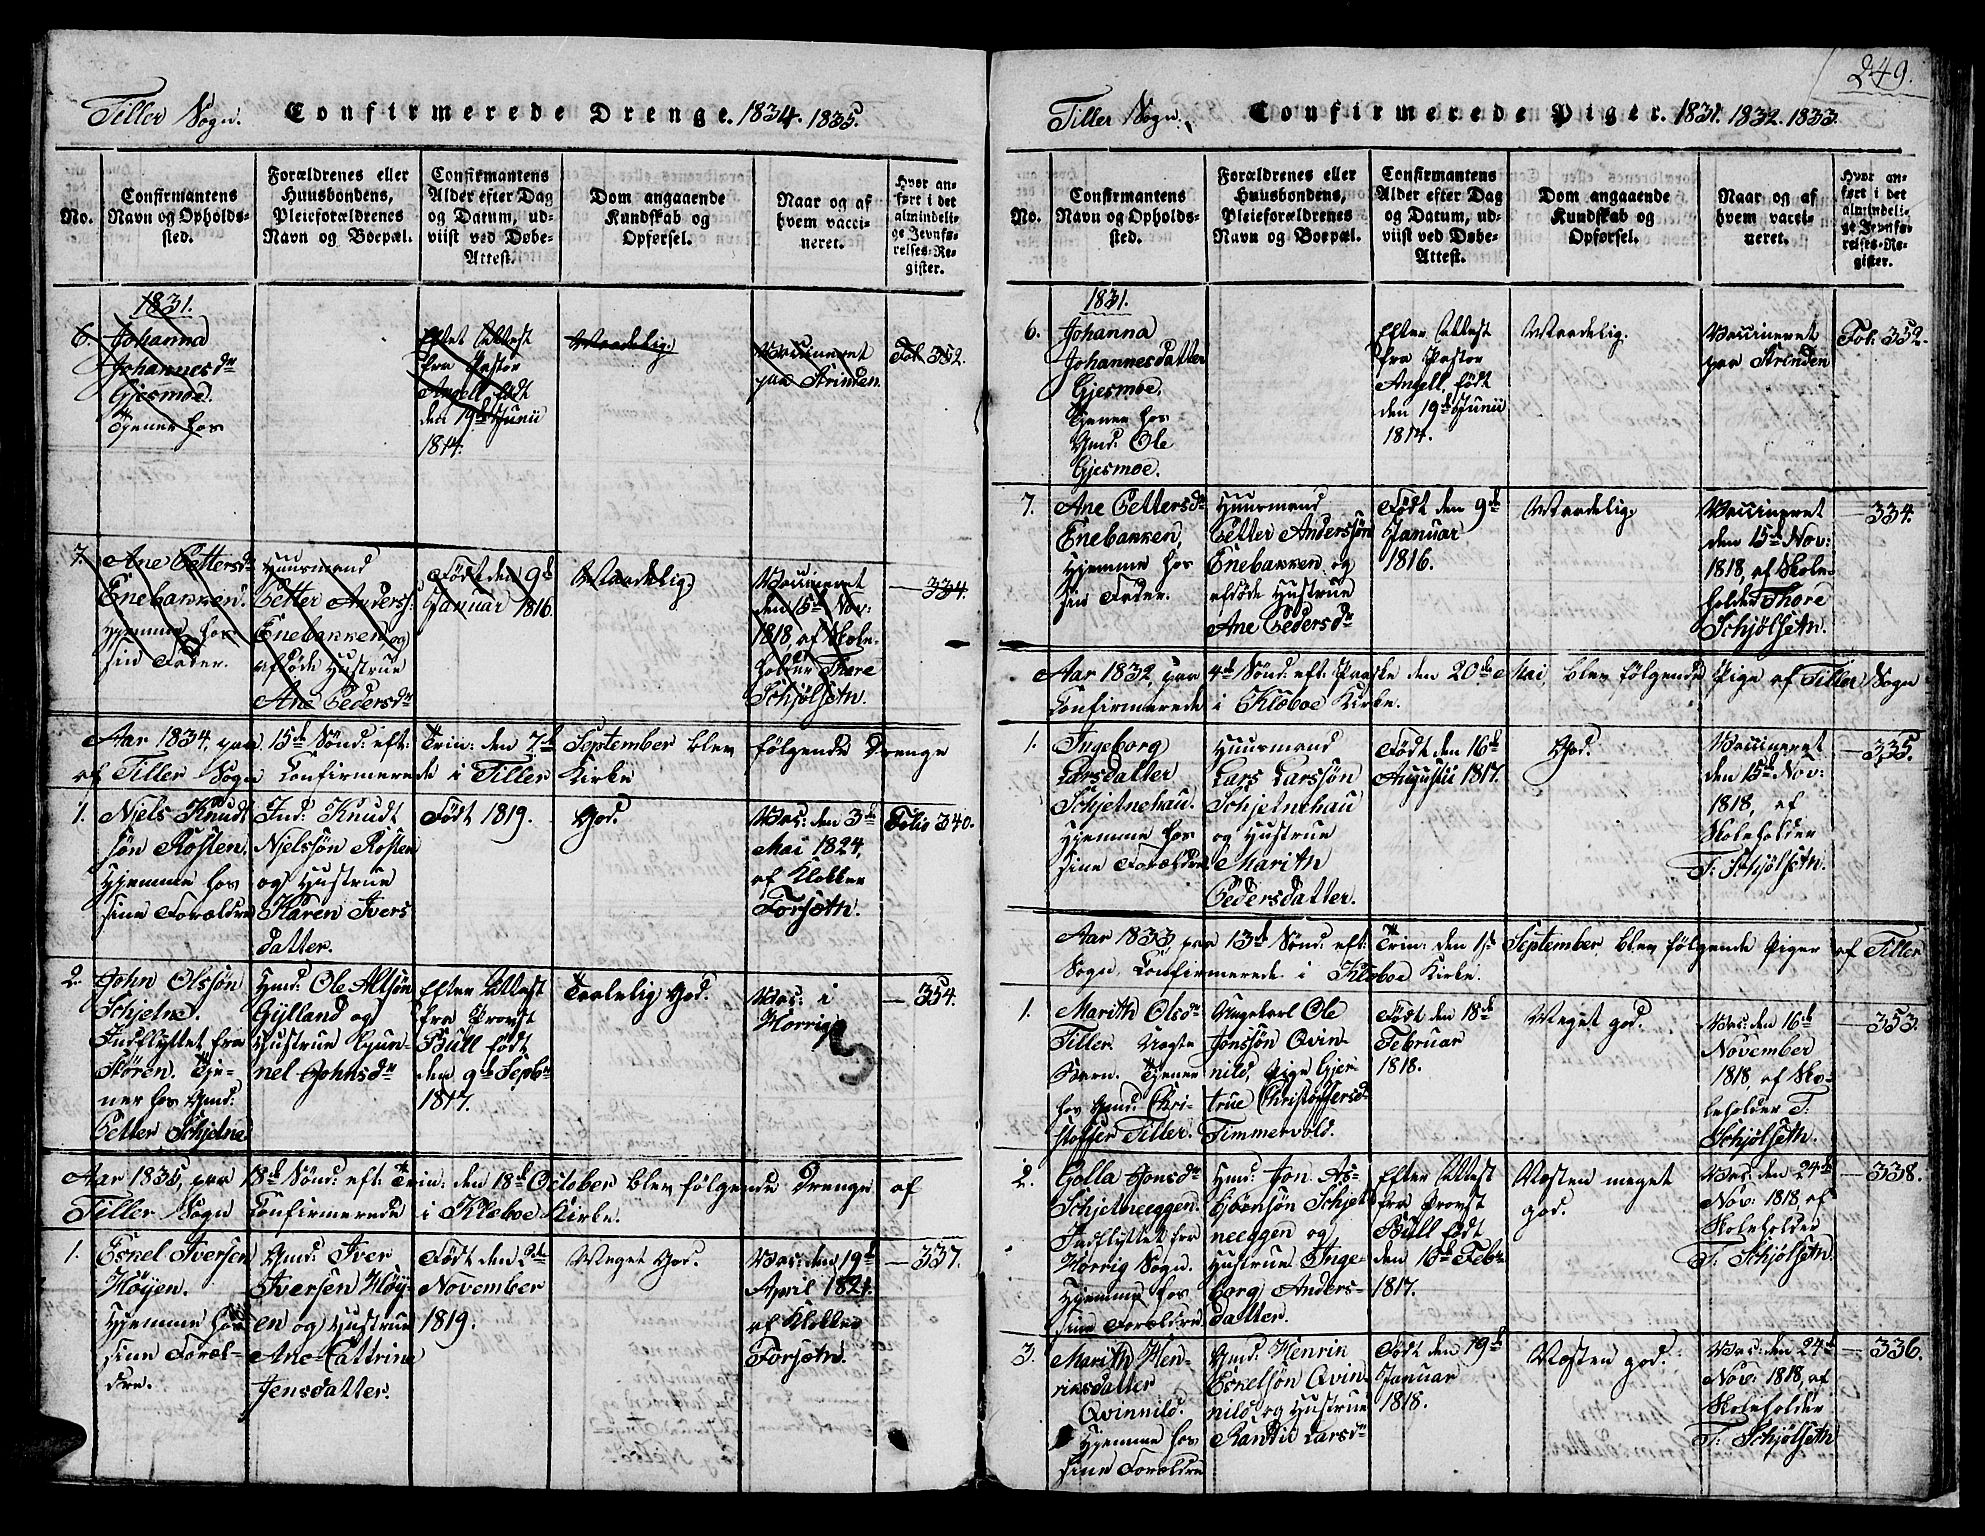 Tiller Sogn. Confirmerede Drenge. 1834. 1835.
No.
Confirmantens
Navn og Opholds-
sted.
Forældrenes eller
Huusbondens,
Pleieforældrenes
Navn og Boepæl.
Confirmantens
Alder efter Dag
og Datum, ud-
viist ved Døbe-
Attest.
Dom angaaende
Kundskab og
Opførsel.
Naar og af
hvem vacci-
neret.
Hvor an-
ført i det
almindeli-
ge Jevnfø-
relses-Re-
gister.
1831.
6. Johanna
Johannesdr
Gjesmoe.
Tjener hos
Efter Attest
fra Pastor
Angell, født
den 19de Junii
1814.
Maadelig.
Vaccineret
paa Strinden.
Fol. 352.
7. Ane Pettersdr
Enebakken.
Hjemme hos
sin Fader.
Huusmand
Petter Anderss:
Enebakken og
afdøde Hustrue
Ane Pedersdr
Født den 9de
Januar 1816.
Maadelig.
Vaccineret
den 15de Nov:
1818, af Skole-
holder Thore
Schjølseth.
— 334.
Aar 1834, paa 15de Sønd: eft: Trin: den 7de September blev følgende Drenge
af Tiller Sogn Confirmerede i Tiller Kirke
1. Niels Knudt
søn Rosten.
Hjemme hos
sine Forældre
Ind: Knudt
Nielssøn Rosten
og Hustrue
Karen Ivers
datter.
Født 1819.
God.
Vac: den 3de
Mai 1824,
af Klokker
Forseth.
Folio 340.
2. John Olssøn
Schjelne.
Indflyttet fra
Støren. Tje-
ner hos Gmd:
Petter Schjelne
Hmd: Ole Altsøn
Gylland og
Hustrue Gun-
nel Johnsdr
Efter Attest
fra Provst
Bull født
den 9de Sepbr
1817.
Taalelig God.
Vac: i
Horrig
— 354.
Aar 1835, paa 18de Sønd: eft: Trin: den 18de October blev følgende Drenge af
Tiller Sogn Confirmerede i Klæboe Kirke.
1. Eskel Iversen
Høyen.
Hjemme hos
sine Foræl-
dre.
Gmd: Iver
Iversen Høy-
en og Hustrue
Ane Cattrine
Jensdatter.
Født den 2de
November
1819.
Meget God.
Vac: den 19de
April 1821.
af Klokker
Forseth.
— 337.
249.
Tiller Sogn. Confirmerede Piger. 1831. 1832. 1833.
No.
Confirmantens
Navn og Opholds-
sted.
Forældrenes eller
Huusbondens,
Pleieforældrenes
Navn og Boepæl.
Confirmantens
Alder efter Dag
og Datum, ud-
viist ved Døbe-
Attest.
Dom angaaende
Kundskab og
Opførsel.
Naar og af
hvem vacci-
neret.
Hvor an-
ført i det
almindeli-
ge Jevnfø-
relses-Re-
gister.
1831.
6. Johanna
Johannesdatter
Gjesmoe.
Tjener hos
Gmd: Ole
Gjesmoe.
Efter Attest
fra Pastor
Angell, født
den 19de Junii
1814.
Maadelig.
Vaccineret
paa Strinden
Fol. 352.
7. Ane Pettersdr
Enebakken,
Hjemme hos
sin Fader.
Huusmand
Petter Anderssøn
Enebakken og
afdøde Hustrue
Ane Pedersdr
Født den 9de
Januar
1816.
Maadelig.
Vaccineret
den 15de Nov:
1818, af Skole-
holder Thore
Schjølseth.
— 334.
Aar 1832, paa 4de Sønd: eft: Paaske den 20de Mai, blev følgende Pige af Tiller Sogn
Confirmerede i Klæboe Kirke.
1. Ingeborg
Larsdatter
Schjelnehau.
Hjemme hos
sine Forældre
Huusmand
Lars Larssøn
Schjelnehau
og Hustrue
Marith
Pedersdatter.
Født den 16de
Augustii 1817.
God.
Vaccineret
den 15de Nov:
1818, af
Skoleholder
T: Schjølseth.
— 335.
Aar 1833, paa 13de Sønd: eft: Trin: den 1ste September, blev følgende Piger af Tiller
Sogn, Confirmerede i Klæboe Kirke.
1. Marith Olsdr
Tiller Uægte
Barn. Tjener
hos Gmd: Chri-
stoffer Tiller.
Ungekarl Ole
Jonssøn Qvin-
nild, Pige Gjer-
true Christoffersdr
Timmervold.
Født den 18de
Februar
1818.
Meget god.
Vac: den 16de
November
1818, af Sko-
leholder T:
Schjølseth.
— 353.
2. Golla Jonsdr
Schjelneeggen.
Indflyttet fra
Horrig Sogn.
Hjemme hos
sine Forældre
Hmd: Jon As-
bjørnsøn Schjel-
neeggen og
Hustrue Inge-
borg Anders-
datter.
Efter Attest
fra Provst
Bull født
den 15de Febr
1817.
Næsten meget
god.
Vac: den 24de
Nov: 1818, af
Skoleholder
T: Schjølseth.
— 338.
3. Marith Hen-
riksdatter
Qvinnild.
Hjemme hos
sine Forældre
Gmd: Henrik
Eskelsøn Qvin-
nild og Hustrue
Randii Larsdr
Født den 19de
Januar
1818.
Næsten god.
Vac: den 24de
Nov: 1818, af
Skoleholder
T: Schjølseth
— 336.